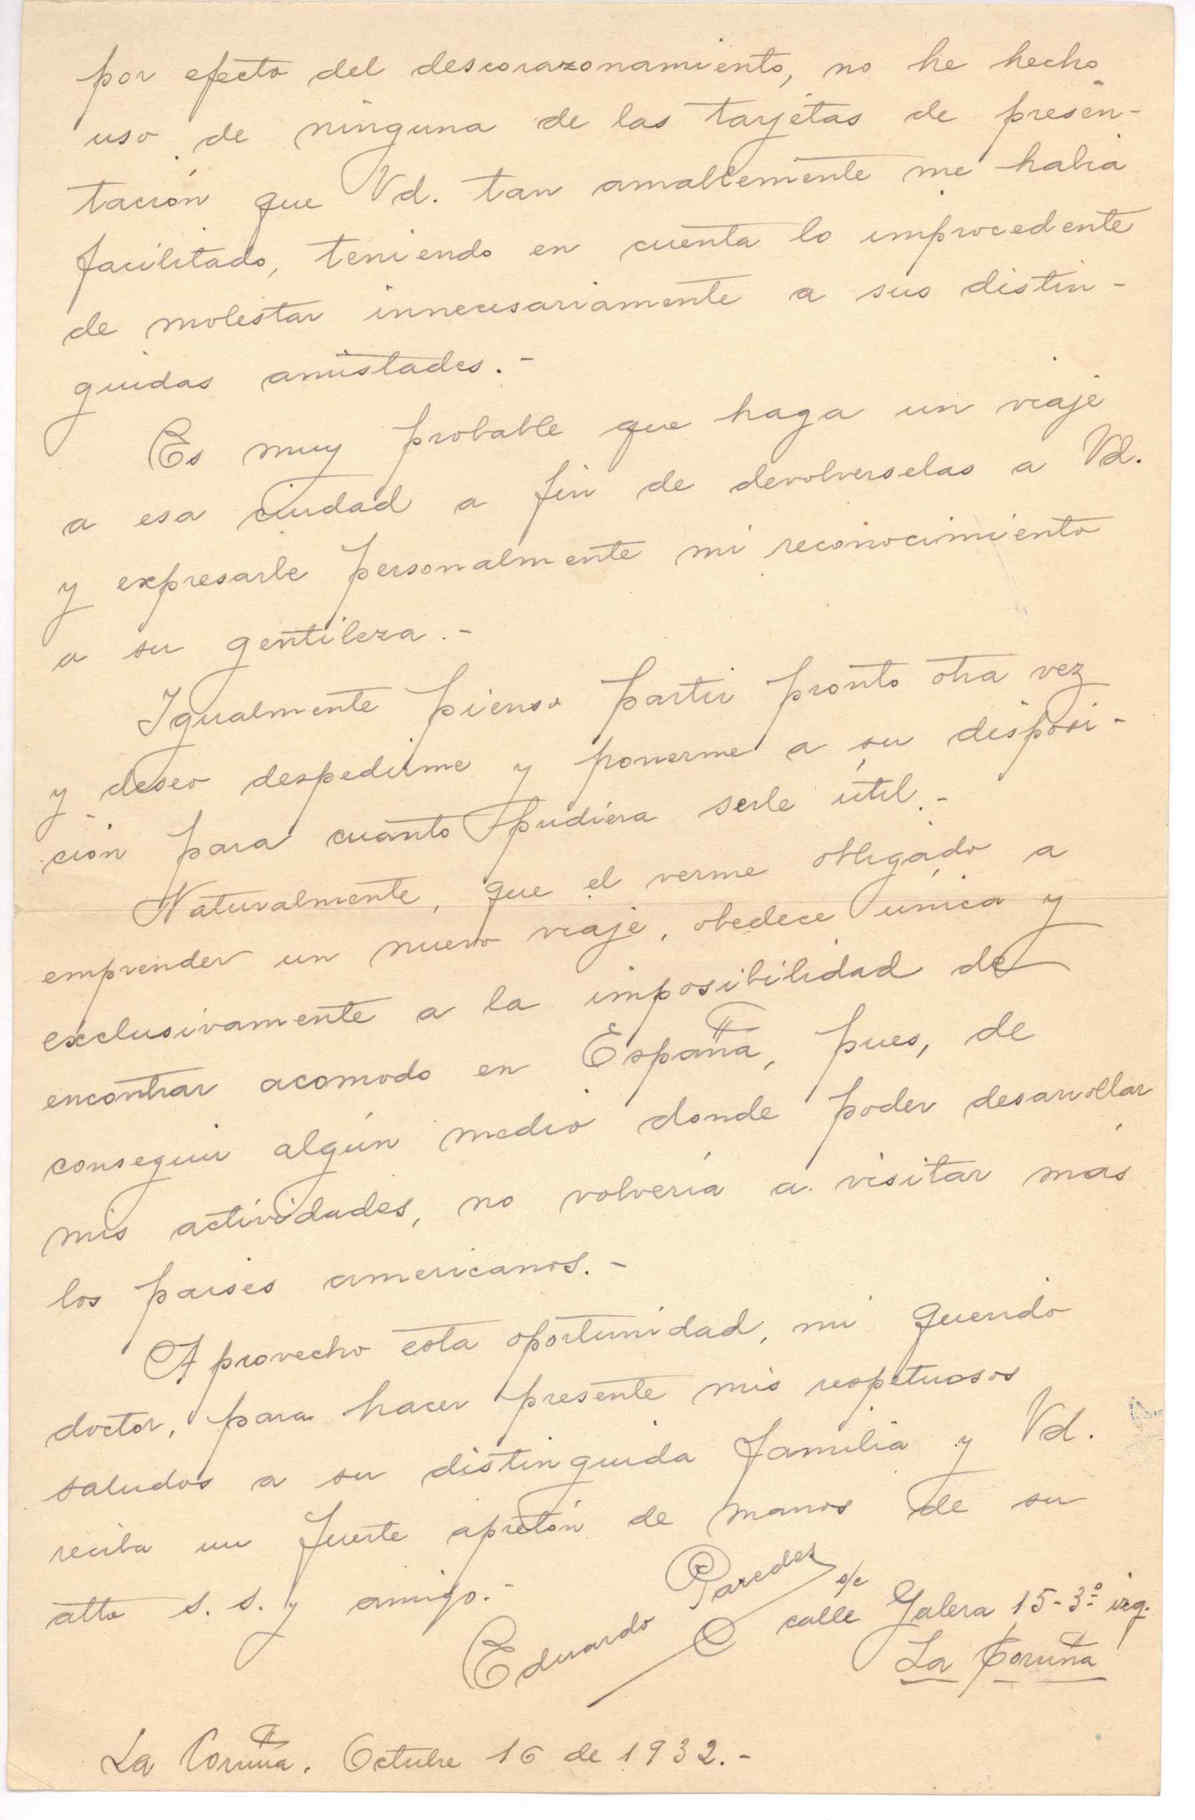 por efecto del descorazonamiento, no he hecho
uso de ninguna de las tarjetas de presen-
tación que Vd. tan amablemente me habia
facilitado, teniendo en cuenta lo improcedente
de molestar innecesariamente a sus distin-
guidas amistades.-
Es muy probable que haga un viaje
a esa ciudad a fin de devolverselas a Vd.
y expresarle personalmente mi reconocimiento
a su gentileza.-
Igualmente pienso partir pronto otra vez
y deseo despedirme y ponerme a su disposi-
ción para cuanto pudiera serle útil.-
Naturalmente, que el verme obligado a
emprender un nuevo viaje, obedece única y
exclusivamente a la imposibilidad de
encontrar acomodo en España, pues, de
conseguir algún medio donde poder desarrollar
mis actividades, no volvería a visitar más
los paises americanos.-
Aprovecho esta oportunidad, mi querido
doctor, para hacer presente mis respetuosos
saludos a su distinguida familia y Vd.
reciba un fuerte apretón de manos de su
atto s. s. y amigo.-
Eduardo Paredes
s/c
calle Galera 15-3º izq.
La Coruña
La Coruña, Octubre 16 de 1932.-